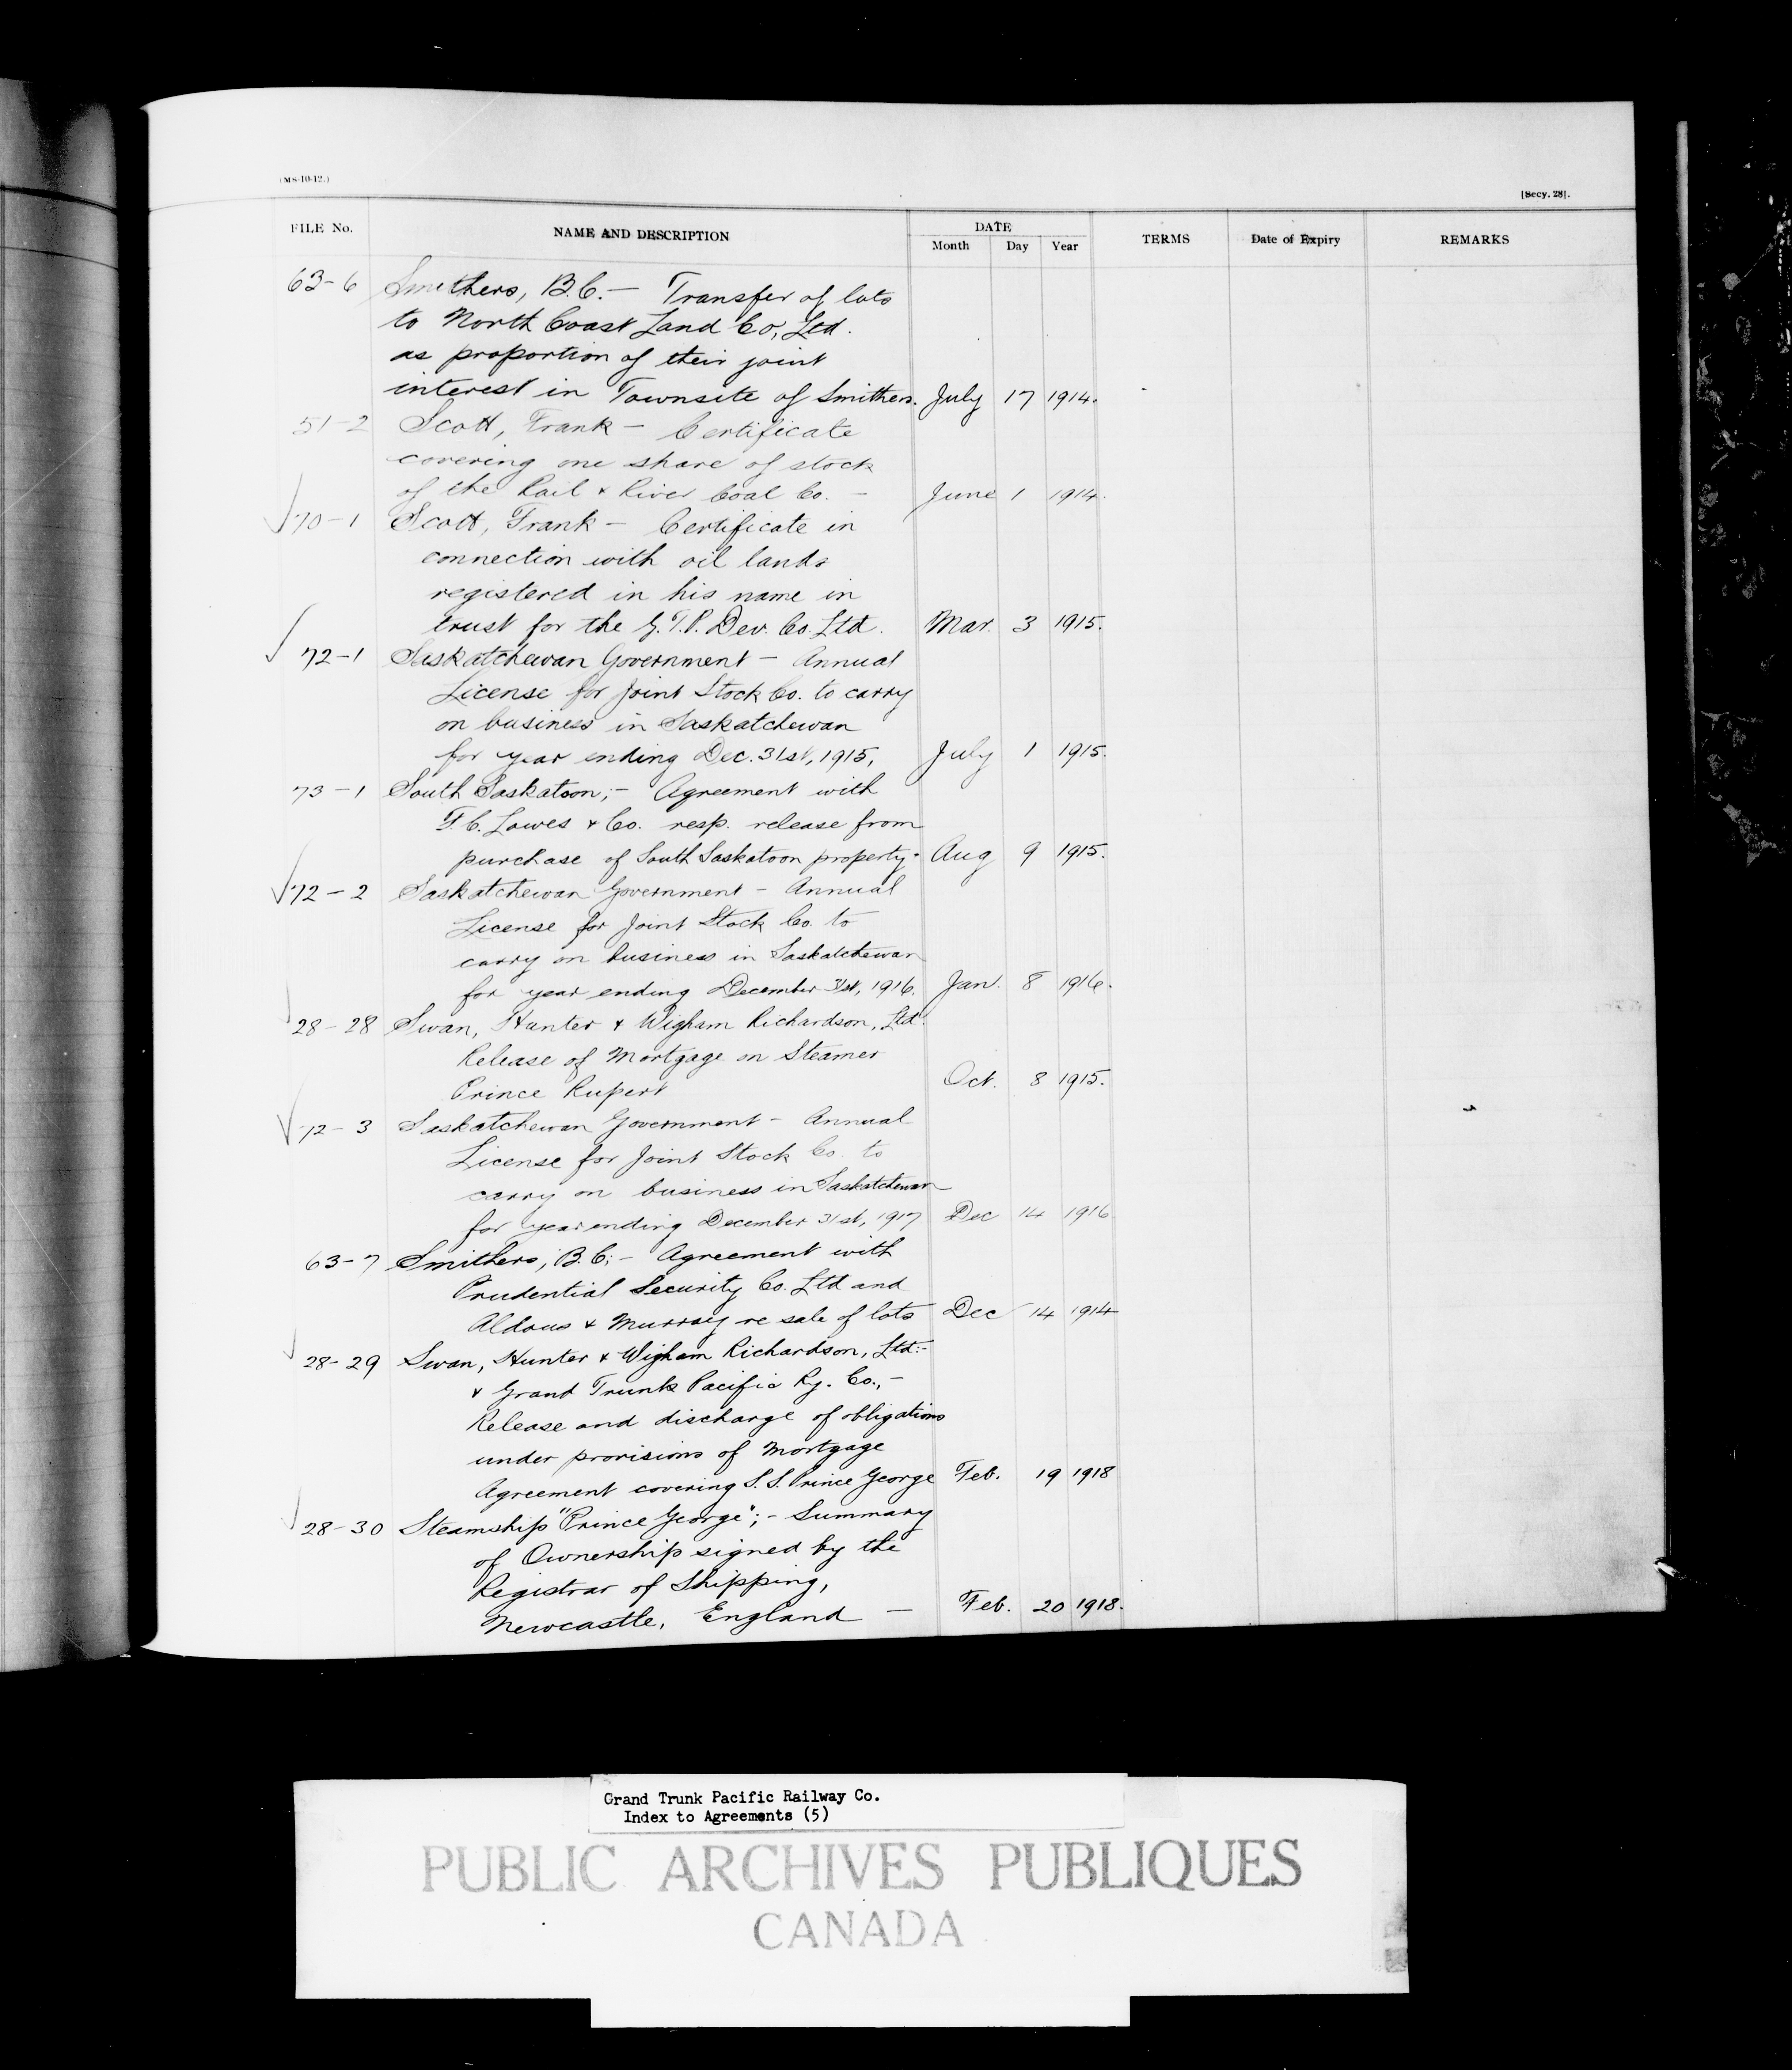 (MS-10-12.)
[Secy. 28].
FILE No. NAME AND DESCRIPTION DATE TERMS Date of Expiry REMARKS
Month Day Year
63-6 Smithers, B.C. — Transfer of lots
to North Coast Land Co, Ltd.
as proportion of their joint
interest in Townsite of Smithers. July 17 1914.
51-2 Scott, Frank — Certificate
covering one share of stock
of the Rail & River Coal Co. — June 1 1914.
√70-1 Scott, Frank — Certificate in
connection with oil lands
registered in his name in
trust for the G.T.P. Dev. Co. Ltd. Mar. 3 1915.
√ 72-1 Saskatchewan Government — Annual
License for Joint Stock Co. to carry
on business in Saskatchewan
for year ending Dec. 31st, 1915, July 1 1915.
73-1 South Saskatoon; — Agreement with
F.C. Lowes & Co. resp. release from
purchase of South Saskatoon property- Aug 9 1915.
√72-2 Saskatchewan Government — Annual
License for Joint Stock Co. to
carry on business in Saskatchewan
for year ending December 31st, 1916. Jan. 8 1916.
√ 28-28 Swan, Hunter & Wigham Richardson, Ltd.
Release of Mortgage on Steamer
Prince Rupert Oct. 8 1915.
√ 72-3 Saskatchewan Government — Annual
License for Joint Stock Co. to
carry on business in Saskatchewan
for year ending December 31st, 1917 Dec 14 1916
63-7 Smithers, B.C; — Agreement with
Prudential Security Co. Ltd and
Aldous & Murray re sale of lots Dec 14 1914
√ 28-29 Swan, Hunter & Wigham Richardson, Ltd:-
& Grand Trunk Pacific Ry. Co., —
Release and discharge of obligations
under provisions of Mortgage
Agreement covering S.S. Prince George Feb. 19 1918
√ 28-30 Steamship "Prince George"; - Summary
of Ownership signed by the
Registrar of Shipping,
Newcastle, England — Feb. 20 1918.
Grand Trunk Pacific Railway Co.
Index to Agreements (5)
PUBLIC ARCHIVES PUBLIQUES
CANADA